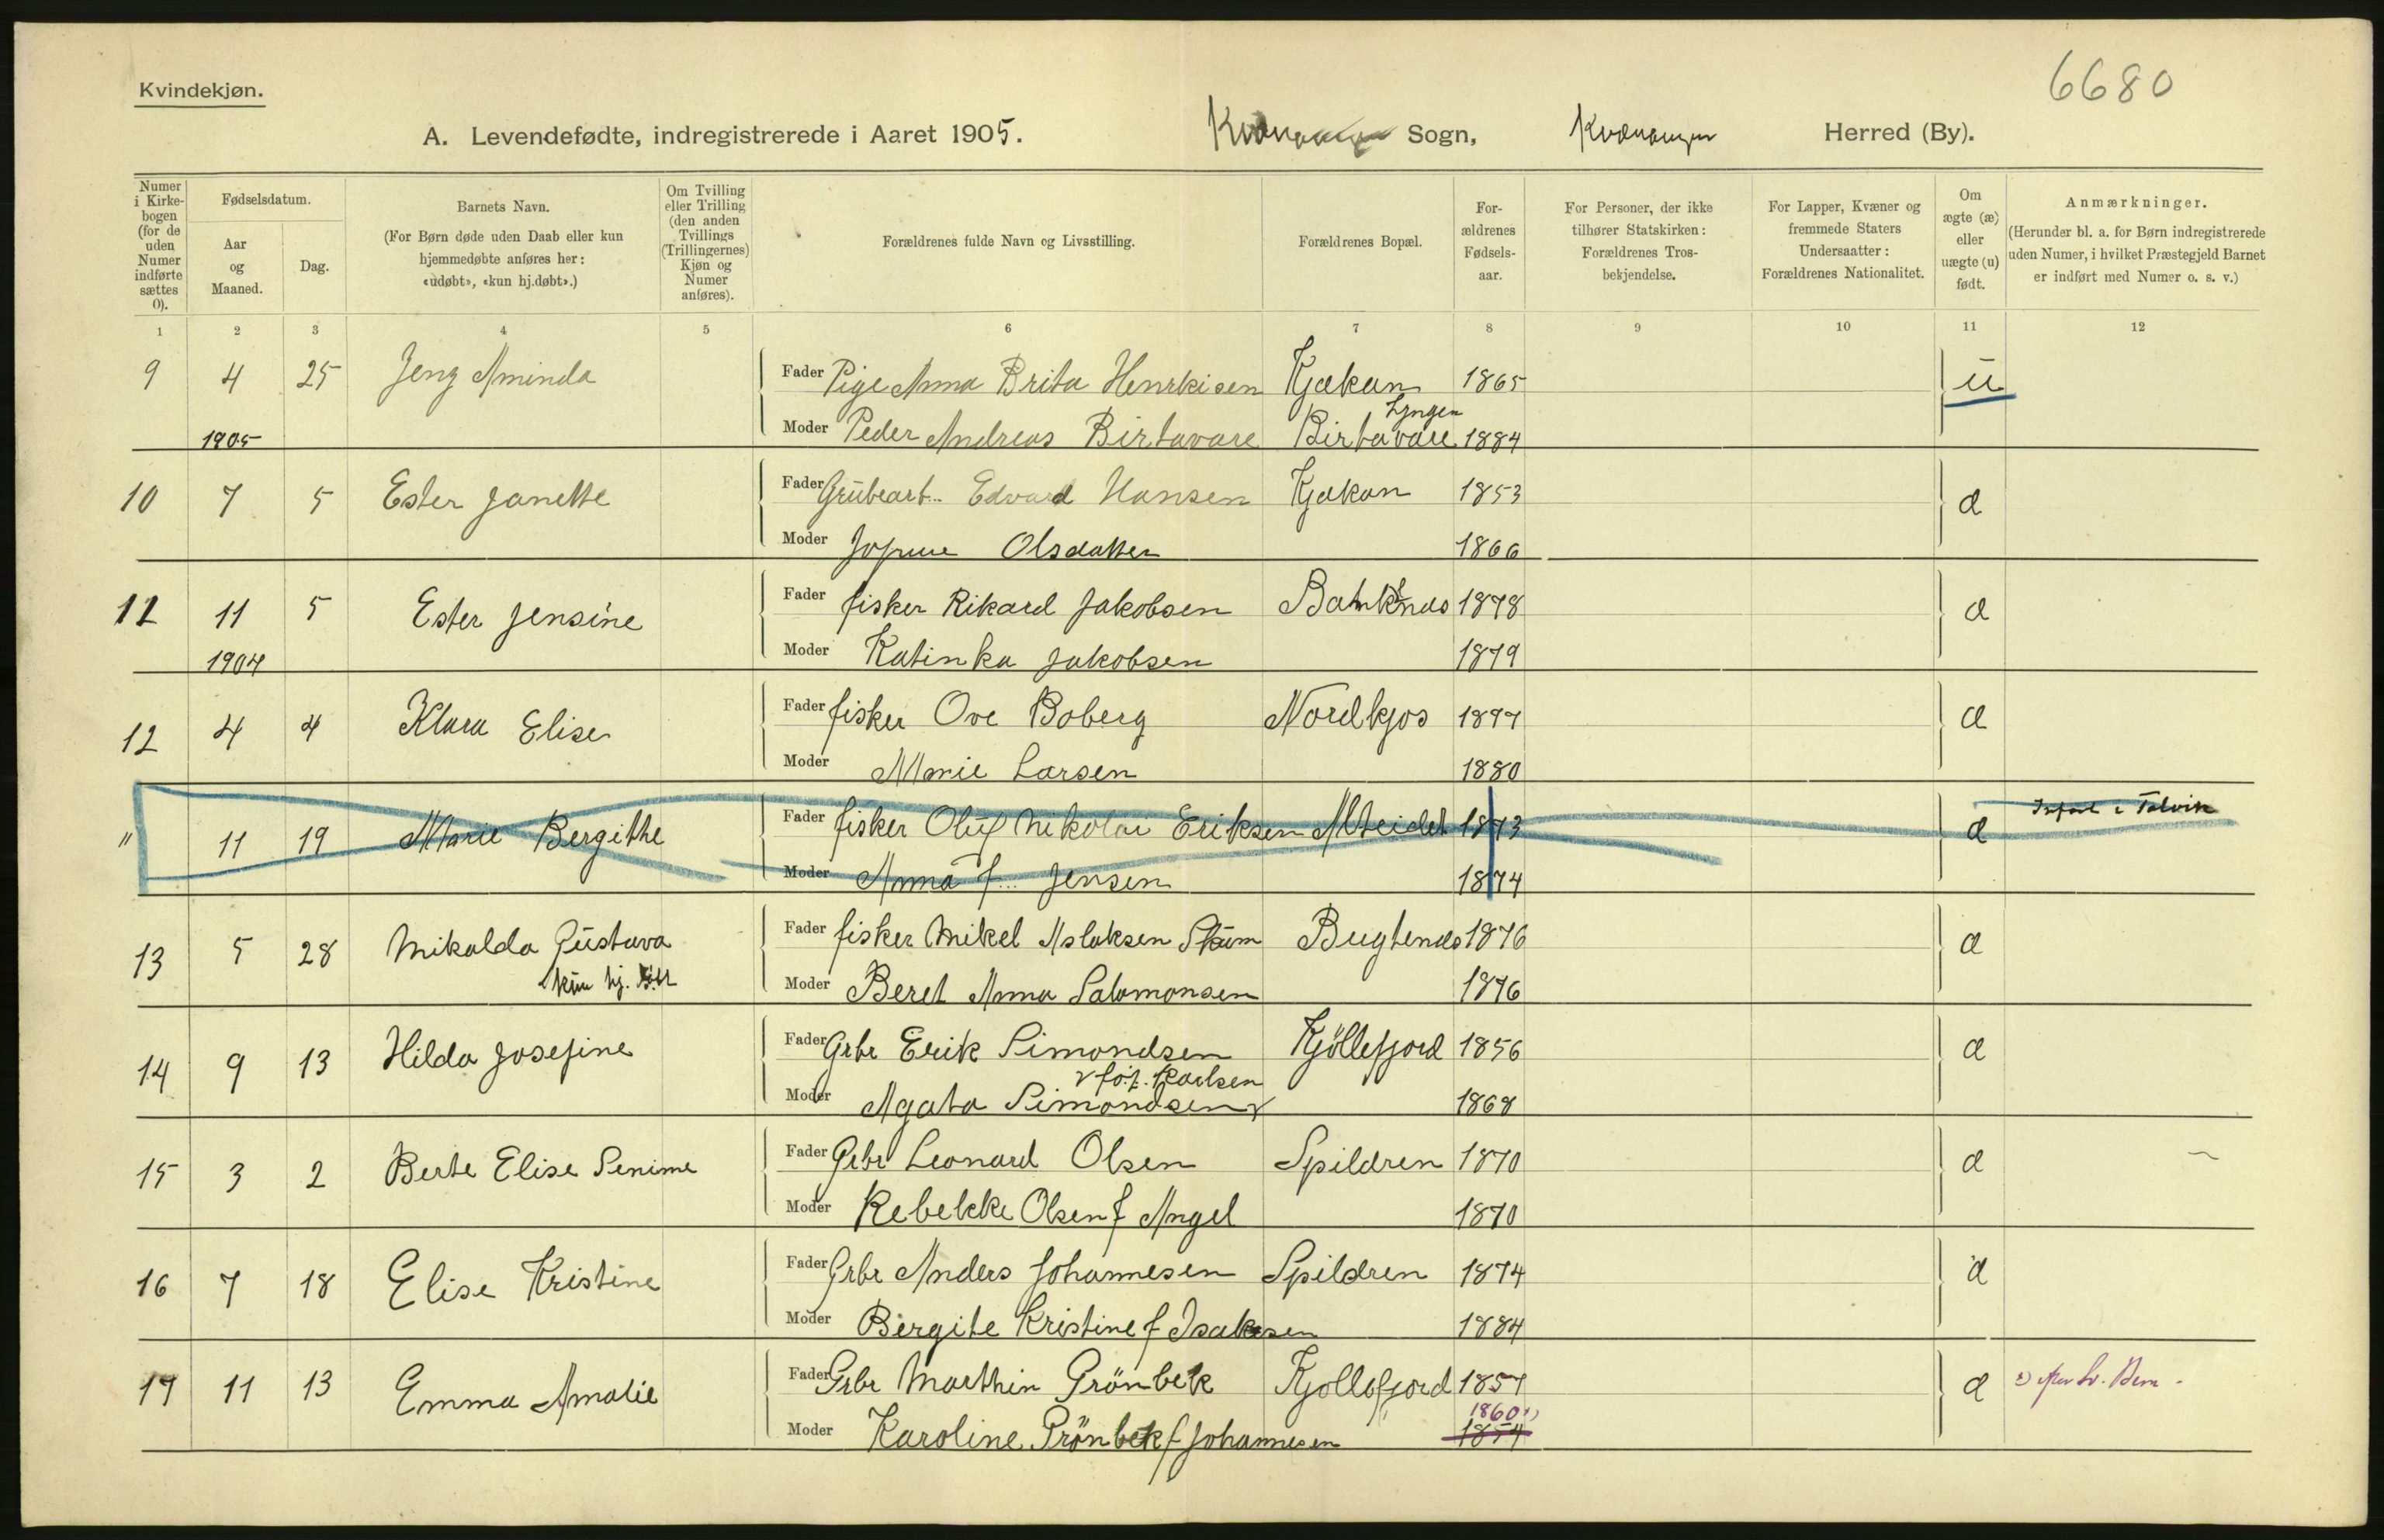 6680
Kvindekjøn.
A. Levendefødte, indregistrerede i Aaret 1905. Kvænangen Sogn, Kvænangen Herred (By).
Numer i Kirkebogen (for de uden Numer indførte sættes 0).
Fødselsdatum.
Aar og Maaned.
Dag.
Barnets Navn.
(For Børn døde uden Daab eller kun hjemmedøbte anføres her: «udøbt», «kun hj.døbt».)
Om Tvilling eller Trilling (den anden Tvillings (Trillingernes) Kjøn og Numer anføres).
Forældrenes fulde Navn og Livsstilling.
Forældrenes Bopæl.
For-ældrenes Fødsels-aar.
For Personer, der ikke tilhører Statskirken: Forældrenes Tros-bekjendelse.
For Lapper, Kvæner og fremmede Staters Undersaatter: Forældrenes Nationalitet.
Om ægte (æ) eller uægte (u) født.
Anmærkninger.
(Herunder bl. a. for Børn indregistrerede uden Numer, i hvilket Præstegjeld Barnet er indført med Numer o. s. v.)
1 2 3 4 5 6 7 8 9 10 11 12
9 4 25 Jeng Aminda Fader Pige Anna Brita Henrkisen Kjækan 1865 u
Lyngen
1905 Moder Peder Andreas Birtavare Birtavare 1884
10 7 5 Ester Janette Fader Grubearb.. Edvard Hansen Kjækan 1853 æ
Moder Olsdatter 1866
11 11 5 Ester Jensine Fader fisker Rikard Jakobsen 1878 æ
1904 Moder Katinka Jakobsen 1879
12 4 4 Klara Elise Fader fisker Ove Boberg Nordkjos 1877 æ
Moder Marie Larsen 1880
" 11 19 Marie Bergithe Fader fisker Oluf Nikolai Eriksen Alteidet 1873 æ Indført i Talvik
Moder Anna f... Jensen 1874
13 5 28 Mikalda Gustava Fader fisker Mikel Aslaksen Skum Bugtenes 1876 æ
kun hj. Moder Beret Anna Salamonsen 1876
14 9 13 Hilda Josefine Fader Grbr Erik Simondsen Kjöllefjord 1856 æ
v föd. Karlsen
Moder Agata Simondsen v 1868
15 3 2 Berte Elise Senime Fader Grbr Leonard Olsen Spildren 1870 æ
Moder Rebekke Olsen f Angel 1870
16 7 18 Elise Kristine Fader Grbr Anders Johannesen Spildren 1874 æ
Moder Birgite Kristine f Isaksen 1884
17 11 13 Emma Amalie Fader Grbr Marthin Grönbek Kjollefjord 1857 æ
1860 1)
Moder Karoline Grönbek f Johannesen 1854